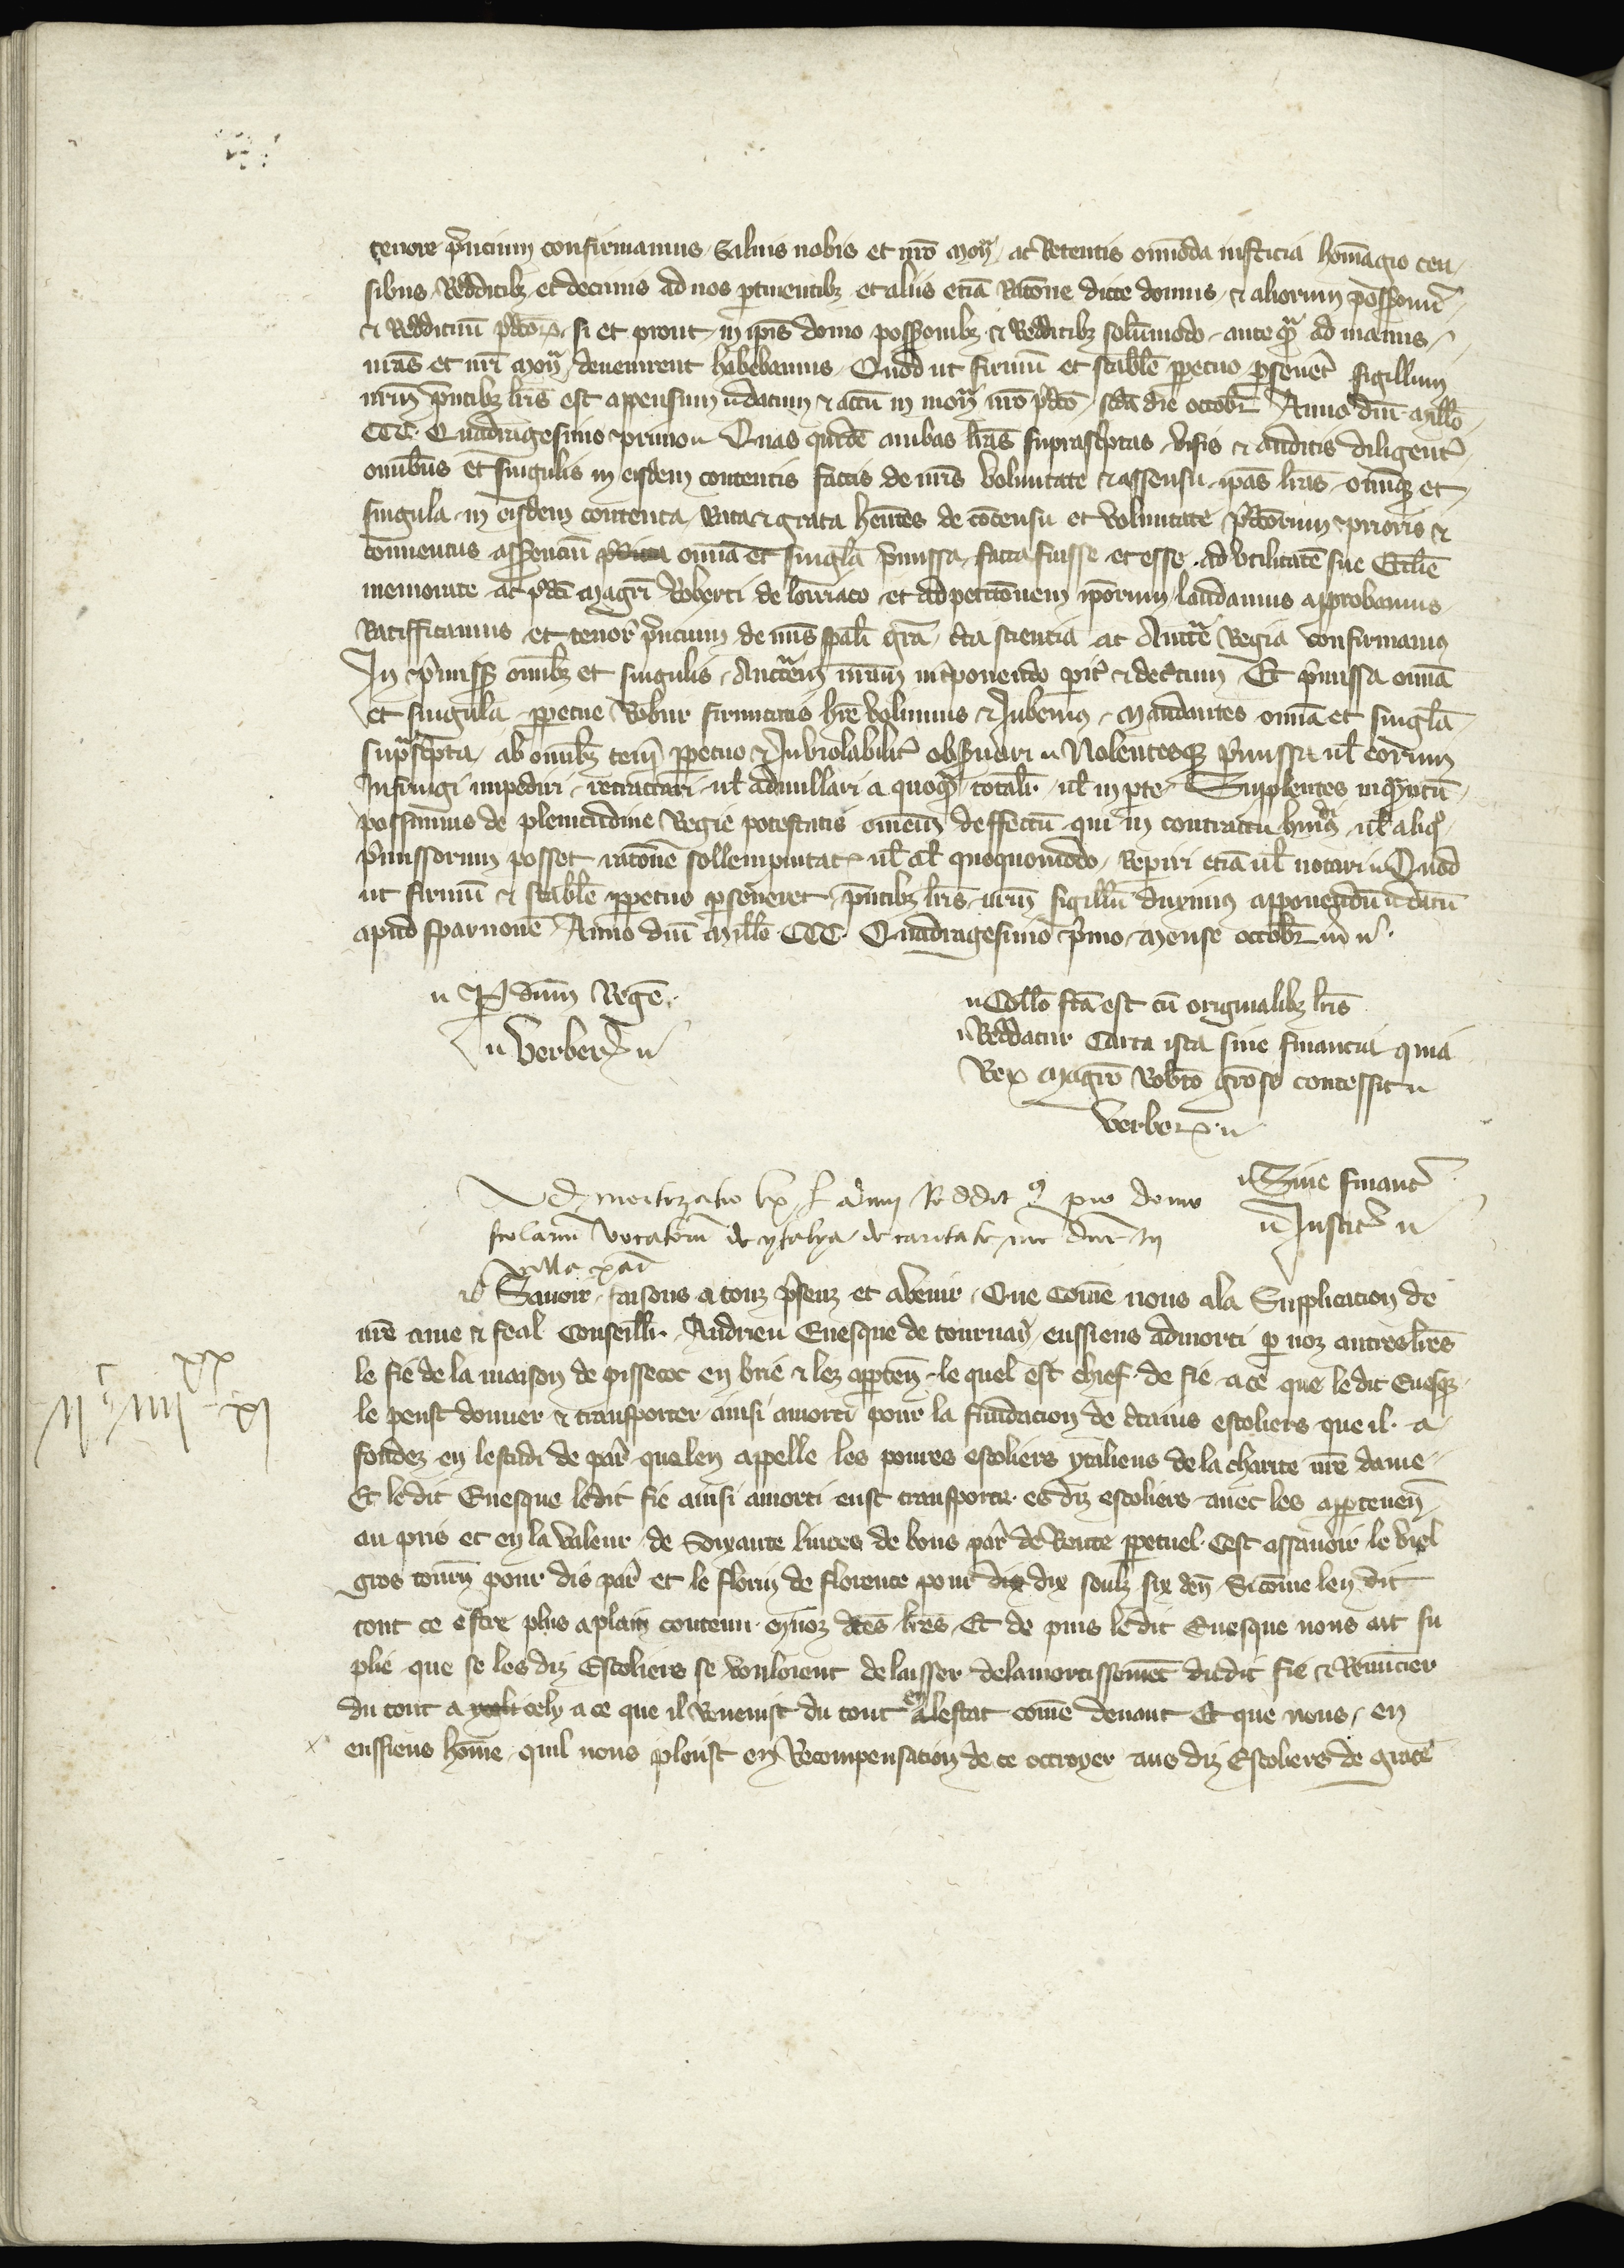 tenore p̃ncium confirmamus. Saluis nobis et nr̃o mon̾ ac Retentis om̃oda iusticia hom̃agio cen
sibus Redditibȝ et decimis ad nos ptinentibȝ et aliis etiã Rat̃one dicte domus & aliorum possessionũ
& Reddituũ pd̃c̃oꝝ si et prout in ip̃is domo possessionibȝ & Redditibȝ solũmodo anteqᵃ ad manus
nr̃as et nr̃i mon̾ deuenirent habebamus. Quod ut firmũ et stabil̃e ppetuo pseueret̾ sigillum
nr̃um p̃ntibȝ lr̃is est appensum datum & actũ in mon̾ nr̃o pd̃c̃o sc̃da die octobr̾ Anno dñi mill̃o
CCC. Quadragesimo primo Quas quidẽ ambas lr̃as suprascptas visis & auditis diligent̾
omnibus et singulis in eisdem contentis factis de nr̃is voluntate & assensu ip̃as lr̃as om̃iaqȝ et
singula in eisdem contenta rata & grata hẽntes de cõcensu et voluntate pd̃c̃orum prioris &
conuentus asserenciũ om̃ia et singl̃a p̃missa facta fuisse et esse ad vtilitatẽ sue Eccl̃ie
memorate ac pd̃c̃i magr̃i Roberti de lorriaco et ad petic̃onem ip̃orum laudamus approbamus
Ratifficamus et tenor̾ p̃ncium de nr̃is sp̃ali gr̃a c̃ta scientia ac Auct̃e Regia confirmamus
In p̃missis om̃ibȝ et singulis Auct̃em nr̃am int̾ponendo pit̾ & dec̾tum Et p̃missa om̃ia
et singula ppetue Robur firmitatis hr̃e volumus & Jubemus. Mandantes om̃ia et singl̃a
supᵃsc̾pta ab om̃ibȝ ten̾i ppetuo & Inviolabilit̾ obseruari Nolentesqȝ p̃missa ul̃ eorum
infringi impediri retractari ul̃ adnullari a quoqᵃ totalit̾ ul̃ in pte Supplentes inqᵃntũ
possumus de plenitudine Regie potestatis om̃em deffectũ qui in contractu huiꝯ ul̃ aliqᵒ
p̃missorum posset rat̃one sollempnitat̾ ul̃ al̃ quoquomodo Repiri etiã ul̃ notari Quod
ut firmũ & stabil̃e ppetuo pseueret p̃ntibȝ lr̃is nr̃um sigillũ duximus apponendũ datũ
apud sparnonẽ Anno dñi mill̃o CCC. Quadragesimo p̃mo mense octobr̾
P dñm Regẽ.
Verber̾
Coll̃o fc̃a est cũ originalibȝ lr̃is
Reddatur Carta ista sine financia quia
Rex magr̃o Rob̃to gr̃ose concessit
Verber̾
Admortizatio lx ł annui Reddit9 pro domo
scolarũ vocatorũ de ytalya de caritate nr̃e dñe in
villa par̃
Sine financ̾
Justic̾
Sauoir faisons a touz p̃senz et auenir. Que com̃e nous a la Supplication de
nr̃e ame & feal Conseill̾. Andrieu Euesque de tournay eussiens admorti p noz autres lr̃es
le fie de la maison de pissecoc en brie & lez apptẽn le quel est chief de fie a ce que ledit Euesqȝ
le peust donner & transporter ainsi amorti pour la fundacion de c̾tains escoliers que il a
fondez en lestudi de par̾ que len appelle les poures escoliers ytaliens de la charite nr̃e dame
Et ledit Euesque ledit fie ainsi amorti eust transporte es diz escoliers auec les apptenen̾
au pris et en la valeur de Soixante liures de bons par̾ de Rente ppetuel. Cest assauoir le viel
gros tourn̾ pour dis par̾ et le florin de florence pour dix soulz six den̾. Si com̃e len dit
tout ce estre plus a plain contenu en noz dc̃es lr̃es. Et de puis ledit Euesque nous ait su
plie que se les diz Escoliers se vouloient delaisser delamortissemẽt dudit fie & Renuncier
du tout a ycely a ce que il Reuenist du tout en lestat com̃e deuant Et que nous en
eussiens hom̃e quil nous pleust en Recompensation de ce octroyer aus diz Escoliers de grace
ijᶜ iiijˣˣ xj